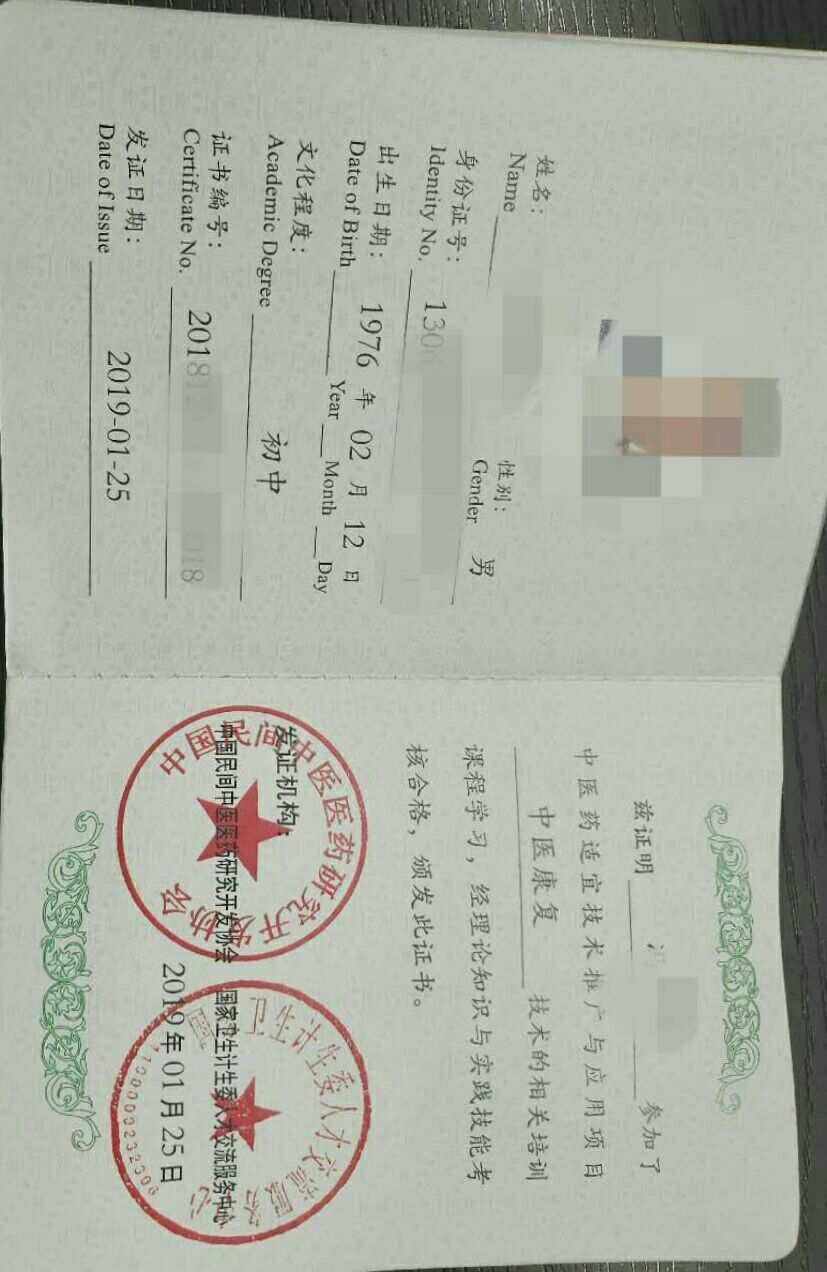 姓名：
Name
性别： 男
Gender
身份证号： 130
Identity No.
出生日期： 1976 年 02 月 12 日
Date of Birth Year Month Day
文化程度： 初中
Academic Degree
证书编号： 2018 018
Certificate No.
发证日期： 2019-01-25
Date of Issue
兹证明 参加了
中医药适宜技术推广与应用项目
中医康复 技术的相关培训
课程学习，经理论知识与实践技能考
核合格，颁发此证书。
发证机构：
中国民间中医医药研究开发协会 国家卫生计生委人才交流服务中心
2019年01月25日
中国民间中医医药研究开发协会
卫生计生委人才交流服务中心